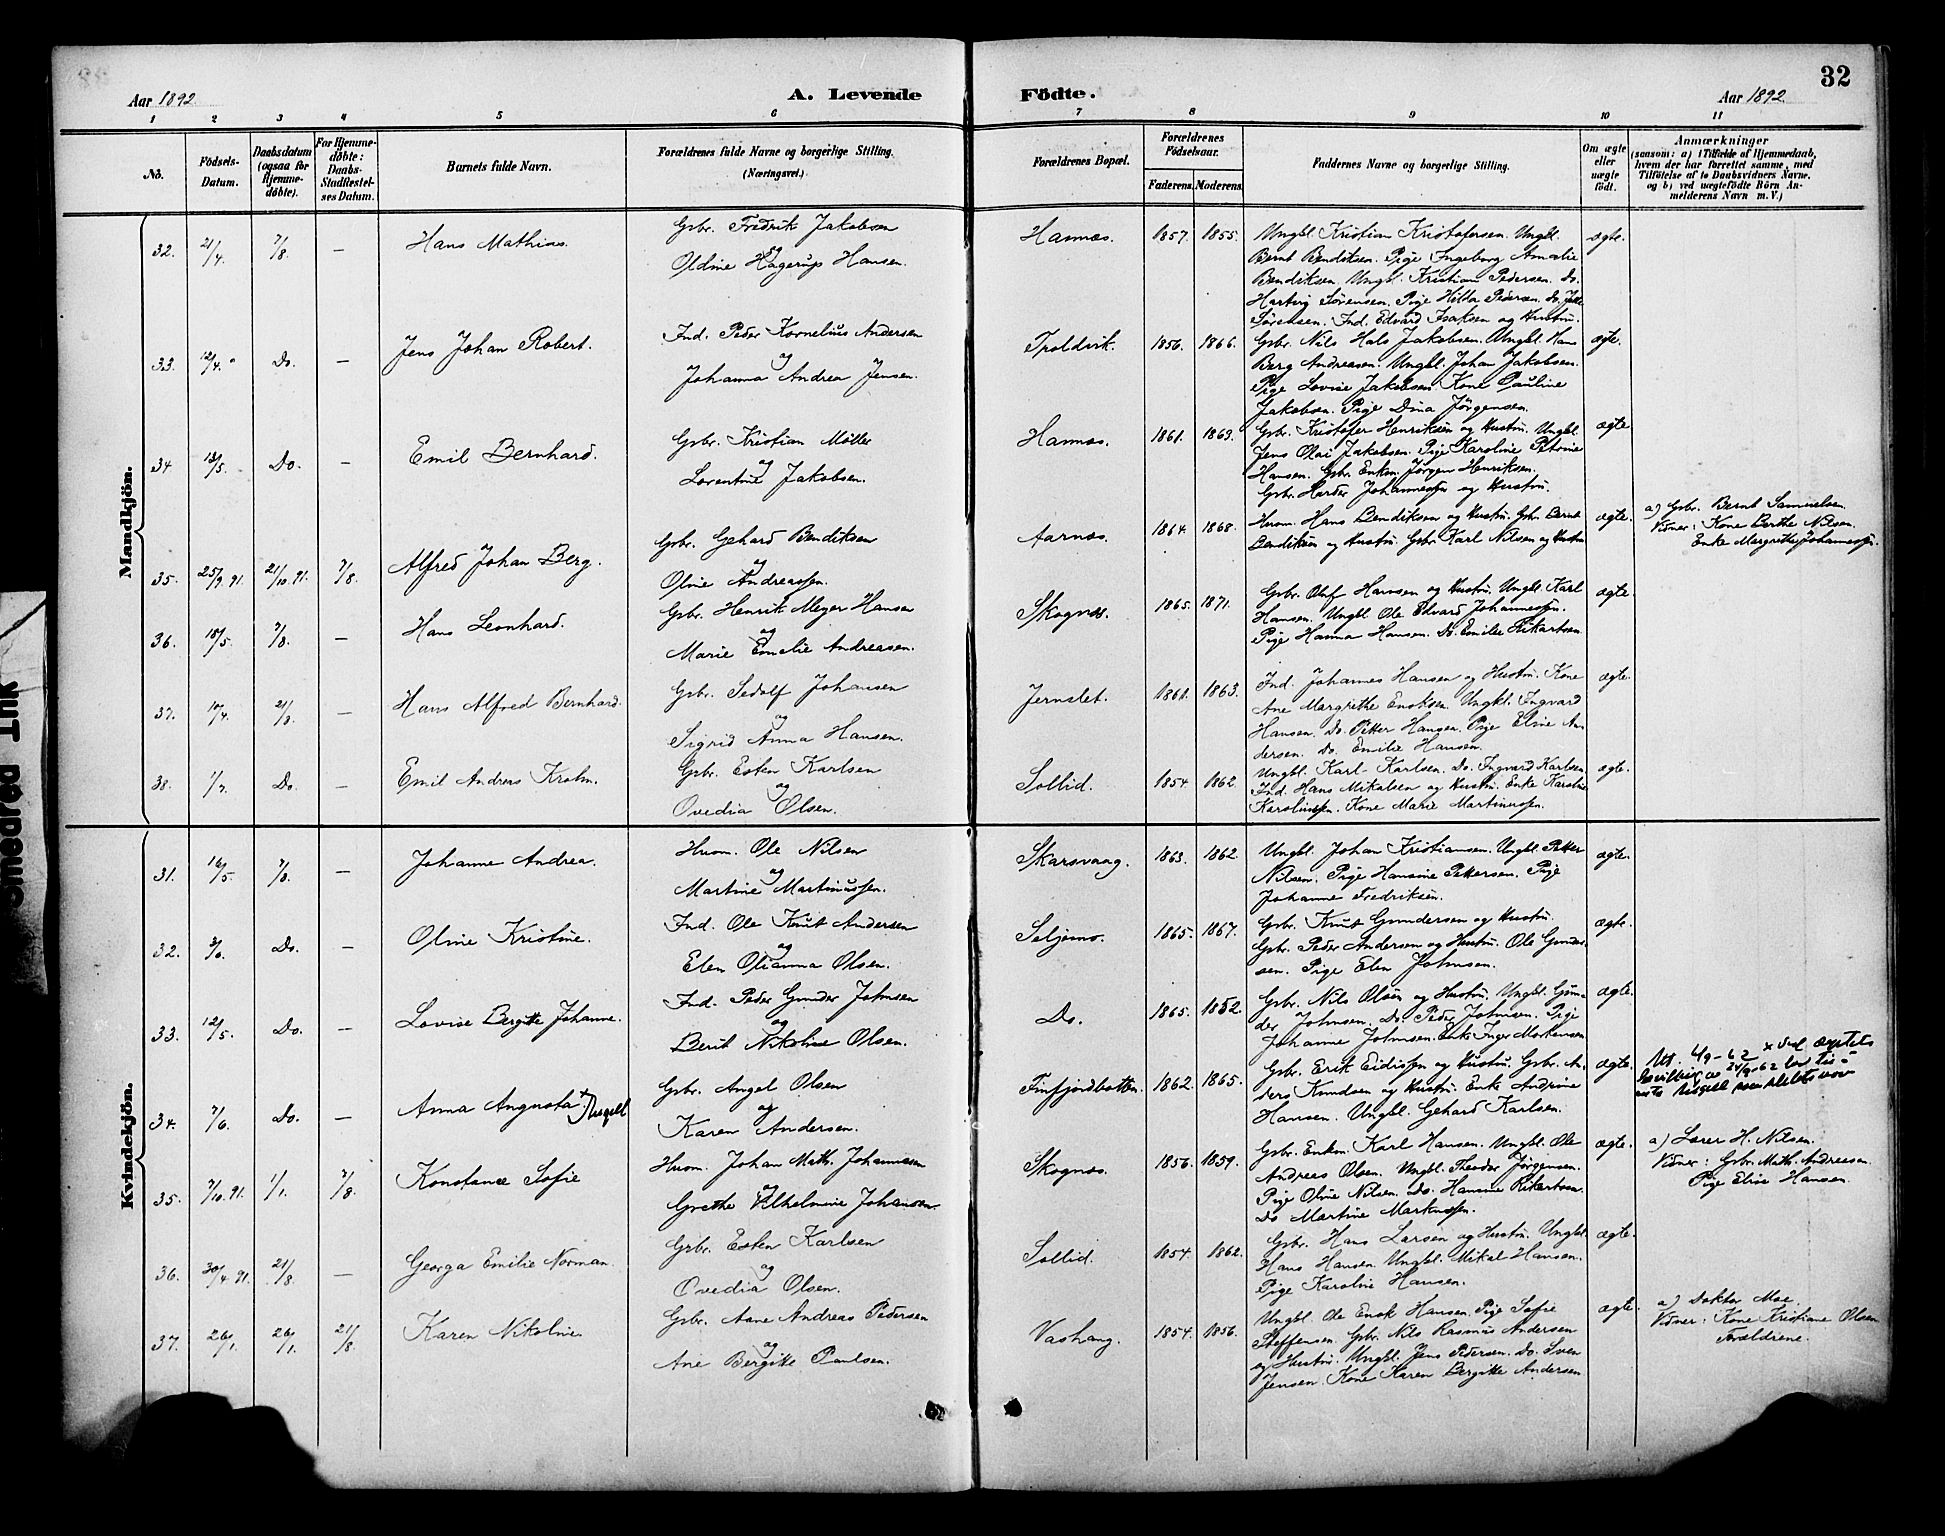 32
Aar 1892
A. Levende Födte.
Aar 1892
1 2 3 4 5 6 7 8 9 10 11
No.
Födsels-Datum.
Daabsdatum (ogsaa for Hjemmedøbte).
For Hjemmedøbte: Daabs-Stadfæstelses Datum.
Barnets fulde Navn.
Forældrenes fulde Navne og borgerlige Stilling. (Næringsvei.)
Forældrenes Bopæl.
Forældrenes Födselsaar.
Faderens. Moderens.
Faddernes Navne og borgerlige Stilling.
Om ægte eller uægte födt.
Anmærkninger
(saasom: a) i Tilfælde af Hjemmedaab,
hvem der har forrettet samme, med
Tilföielse af to Daabsvidners Navne.
og b) ved uægtefödte Börn An-
melderens Navn m. V.)
Mandkjön.
32. 21/4. 7/8. — Hans Mathias. Gbr. Fredrik Jakobsen og Oldine Hagerup Hansen. Hamnes. 1857. 1855. ægte.
Ungkl. Kristian Kristofersen. Ungkl.
Bernt Bendiksen. Pige Ingeborg Amalie
Bendiksen. Ungkl. Kristian Pedersen. Do.
Hartvig Sørensen. Pige Hilda Pedersen. Do.
Sørensen. Ind. Edvard Isaksen og Hustru.
33. 12/4. Do. — Jens Johan Robert. Ind. Peder Kornelius Andersen og Johanna Andrea Jensen. Troldvik. 1856. 1866. ægte.
Gbr. Nils Hals Jakobsen. Ungkl. Hans
Berg Andreasen. Ungkl. Johan Jakobsen.
Pige Lovise Jakobsen. Kone Pauline
Jakobsen. Pige Dina Jørgensen.
34 13/5. Do. — Emil Bernhard. Gbr. Kristian Møller og Lorentine Jakobsen. Hamnes. 1861. 1869. ægte
Gbr. Kristofer Henriksen og Hustru. Ungkl.
Jens Olai Jakobsen. Pige Karoline Petrine
Hansen. Gbr. Enkm. Jørgen Henriksen.
Gbr. Harder Johannessen og Hustru.
35. 25/9.91. 21/10.91. 7/8. Alfred Johan Berg. Gbr. Gehard Bendiksen og Oline Andreassen. Aarnes. 1864. 1868. ægte.
Husm. Hans Bendiksen og Hustru. Gbr. Bernt
Bendiksen og Hustru. Gbr. Karl Nilsen og Hustru
a) Gbr. Bernt Samuelsen.
Vidner: Kone Berthe Nilsen.
Enke Margrethe Johannessen.
36. 18/5. 7/8. — Hans Leonhard. Gbr. Henrik Meyer Hansen og Marie Emelie Andreasen. Skognes. 1865. 1871. ægte.
Gbr. Oluf Hansen og Hustru. Ungkl. Karl
Hansen. Ungkl. Ole Edvard Johannessen.
Pige Hanna Hansen. Do. Emilie Rikartsen.
37. 10/4. 21/8. — Hans Alfred Bernhard. Gbr. Sedolf Johansen og Sigrid Anna Hansen. Jernslet. 1861. 1863. ægte.
Ind. Johannes Hansen og Hustru. Kone
Ane Margrethe Enoksen. Ungkl. Ingvard
Hansen. Do. Petter Hansen. Pige Eline An-
dersen. Do. Emilie Hansen.
38. 1/7. Do. — Emil Andreas Krohn. Gbr. Esten Karlsen og Ovedia Olsen. Sollid. 1854. 1862. ægte.
Ungkl. Karl Karlsen. Do. Ingvard Karlsen.
Ind. Hans Mikalsen og Hustru. Enke Karoline
Karoliussen. Kone Marie Martinussen.
Kvindekjön.
31. 16/5. 7/8. — Johanne Andrea. Husm. Ole Nilsen og Martine Martinussen. Skarsvaag. 1863. 1862. ægte.
Ungkl. Johan Kristiansen. Ungkl. Petter
Nilsen. Pige Hansine Pettersen. Pige
Johanne Fredriksen.
32. 3/6. Do. — Oline Kristine. Ind. Ole Knut Andersen og Elen Olianna Olsen. Seljemo. 1865. 1867. ægte.
Gbr. Knut Gundersen og Hustru.
Gbr. Peder Andersen og Hustru. Ole Gunder-
sen. Pige Elen Johnsen.
33. 12/5. Do. — Lovise Bergitte Johanne. Ind. Peder Gunder Johnsen og Berit Nikoline Olsen. Do. 1865. 1852. ægte.
Gbr. Nils Olsen og Hustru. Ungkl. Gun-
der Johnsen. Do. Peder Johnsen. Pige
Johanne Johnsen. Enke Inger Mortensen
34. 7/6. Do. — Anna Augusta x) Angell Gbr. Angel Olsen og Karen Andersen. Finfjordbotten. 1862. 1865. ægte.
Gbr. Erik Eidissen og Hustru. Gbr. An-
ders Knudsen og Hustru. Enke Andrine
Hansen. Ungkl. Gehard Karlsen.
Att. 4/9-62 x Ved
bevilling av 24/8-62
Angell som slektsnavn
35. 7/10.91. 1/1. 7/8. Konstance Sofie Husm. Johan Math. Johannesen og Grethe Vilhelmine Johansen. Skognes. 1856. 1859. ægte.
Gbr. Enkm. Karl Hansen. Ungkl. Ole
Andreas Olsen. Ungkl. Theodor Jørgensen.
Pige Oline Nilsen. Do. Hansine Rikartsen.
Do Martine Markussen.
a) Lærer H. Nilsen.
Vidner: Gbr. Math. Andreasen.
Pige Elise Hansen.
36. 30/4.91. 21/8. — Georga Emilie Norman. Gbr. Esten Karlsen og Ovedia Olsen. Sollid. 1854. 1862. ægte.
Gbr. Hans Larsen og Hustru. Ungkl.
Hans Hansen. Ungkl. Mikal Hansen.
Pige Karoline Hansen.
37. 26/1. 26/1. 21/8. Karen Nikoline Gbr. Aane Andreas Pedersen og Ane Bergitte Paulsen. Vashaug. 1854. 1856. ægte.
Ungkl. Ole Enok Hansen. Pige Sofie
Steffensen. Gbr. Nils Rasmus Andersen
og Hustru. Ungkl. Jens Pedersen. Do. Sven
Jensen. Kone Karen Bergitte Andersen
a) Doktor Moe.
Vidner: Kone Kristiane Olsen
Forældrene.